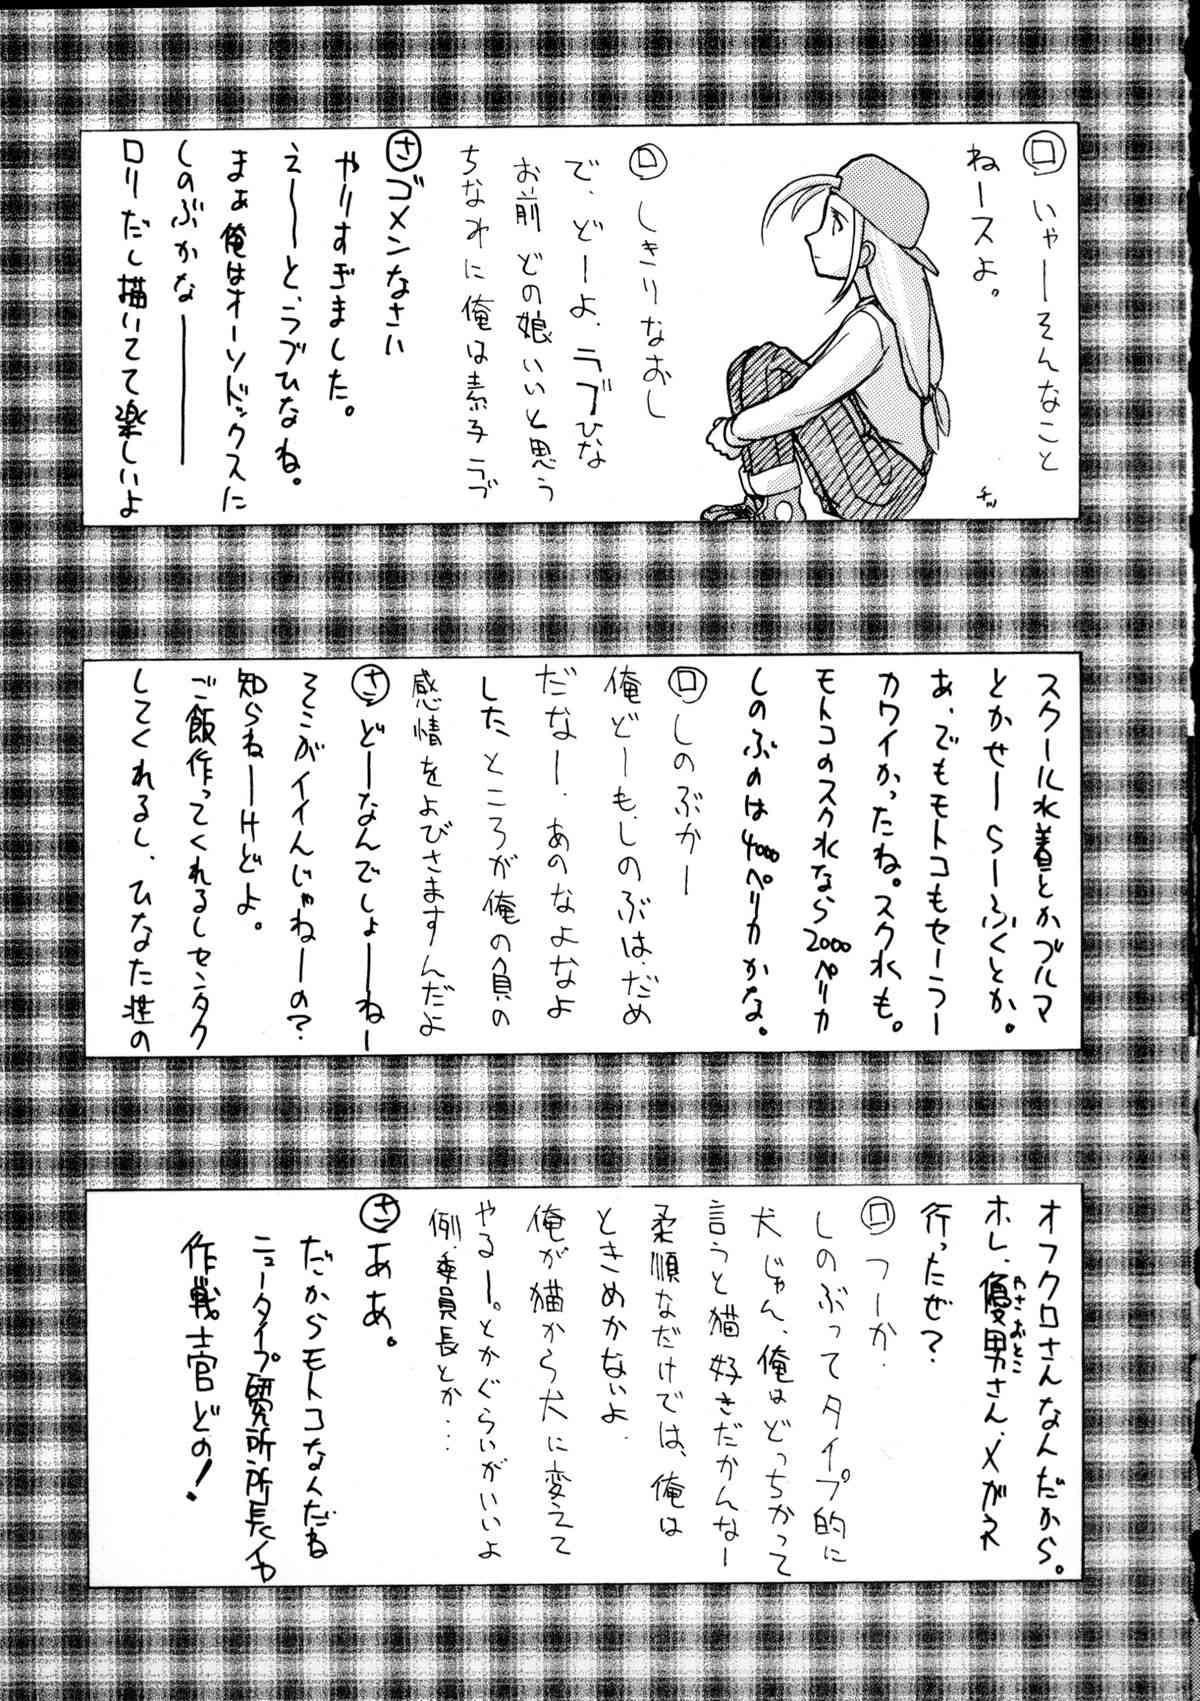 ロ いやーそんなこと
ねースよ。
チッ
ロ しきりなおし
で、どーよ、ラブひな
お前どの娘いいと思う
ちなみに俺は素子ラブ
さ ゴメンなさい
やりすぎました。
えーーと、ラブひなね。
まぁ俺はオーソドックスに
しのぶかな———
ロリだし描いてて楽しいよ
スクール水着とかブルマ
とかせーらーふくとか。
あ、でもモトコもセーラー
カワイかったね。スク水も。
モトコのスク水なら2000ペリカ
しのぶのは4000ペリカかな。
ロ しのぶかー
俺どーも、しのぶは、だめ
だなー、あのなよなよ
したところが俺の負の
感情をよびさますんだよ
さ どーなんでしょーねー
そこがイイんじゃねーの?
知らねーけどよ。
ご飯作ってくれるしセンタク
してくれるし、ひなた荘の
オフクロさんなんだから。
ホレ、優男さん、メガネ
やさおとこ
行ったぜ?
ロ つーか、
しのぶってタイプ的に
犬じゃん、俺はどっちかって
言うと猫好きだかんなー
柔順なだけでは、俺は
ときめかないよ
俺が猫から犬に変えて
やるー。とかぐらいがいいよ
例、委員長とか…
さ ああ。
だからモトコなんだね
ニュータイプ研究所所長、イヤ
作戦士官どの!